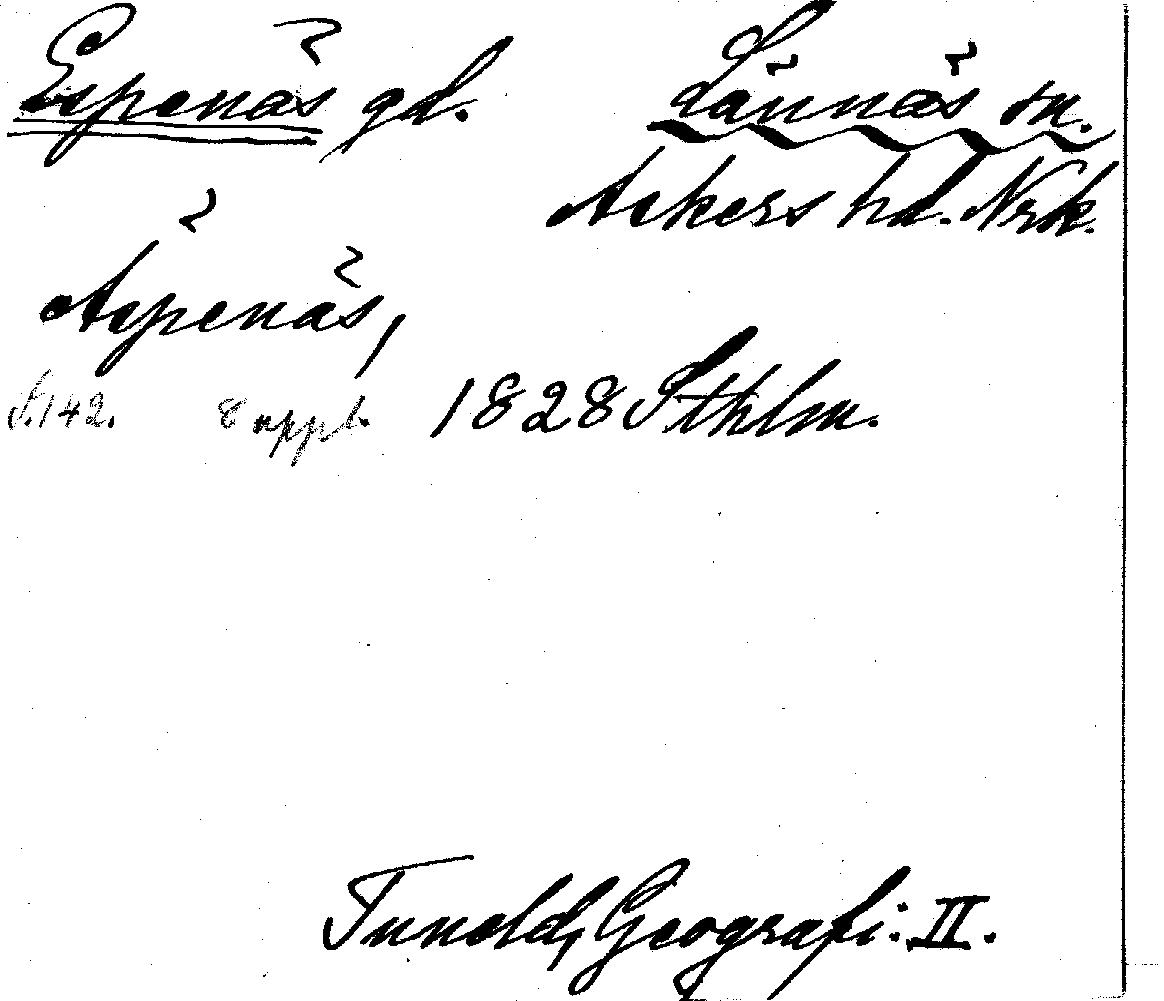 Espenäs gd. Lännäs sn.
Askers hd. Nrk.
Åspenäs,
S. 142. 8 uppl. 1828 Sthlm.
Tuneld, Geografi: II.